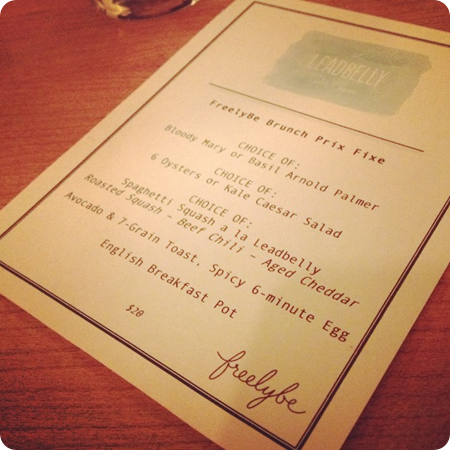 LEADBELLY
FreelyBe Brunch Prix Fixe
CHOICE OF:
Bloody Mary or Basil Arnold Palmer
CHOICE OF:
6 Oysters or Kale Caesar Salad
CHOICE OF:
Spaghetti Squash a la Leadbelly
Roasted Squash - Beef Chili - Aged Cheddar
Avocado & 7-Grain Toast. Spicy 6-minute Egg
English Breakfast Pot
$20
freelybe